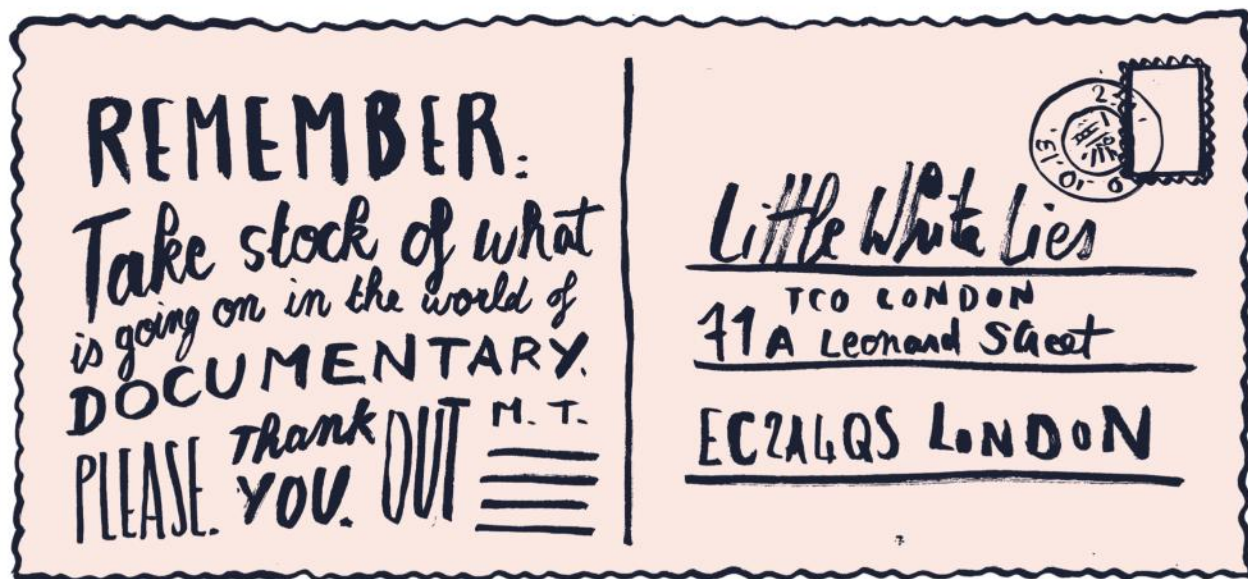 REMEMBER:
Take stock of what
is going on in the world of
DOCUMENTARY.
PLEASE. Thank YOU. OUT M. T.
Little White Lies
TCO LONDON
71A Leonard Street
EC2A4QS LONDON